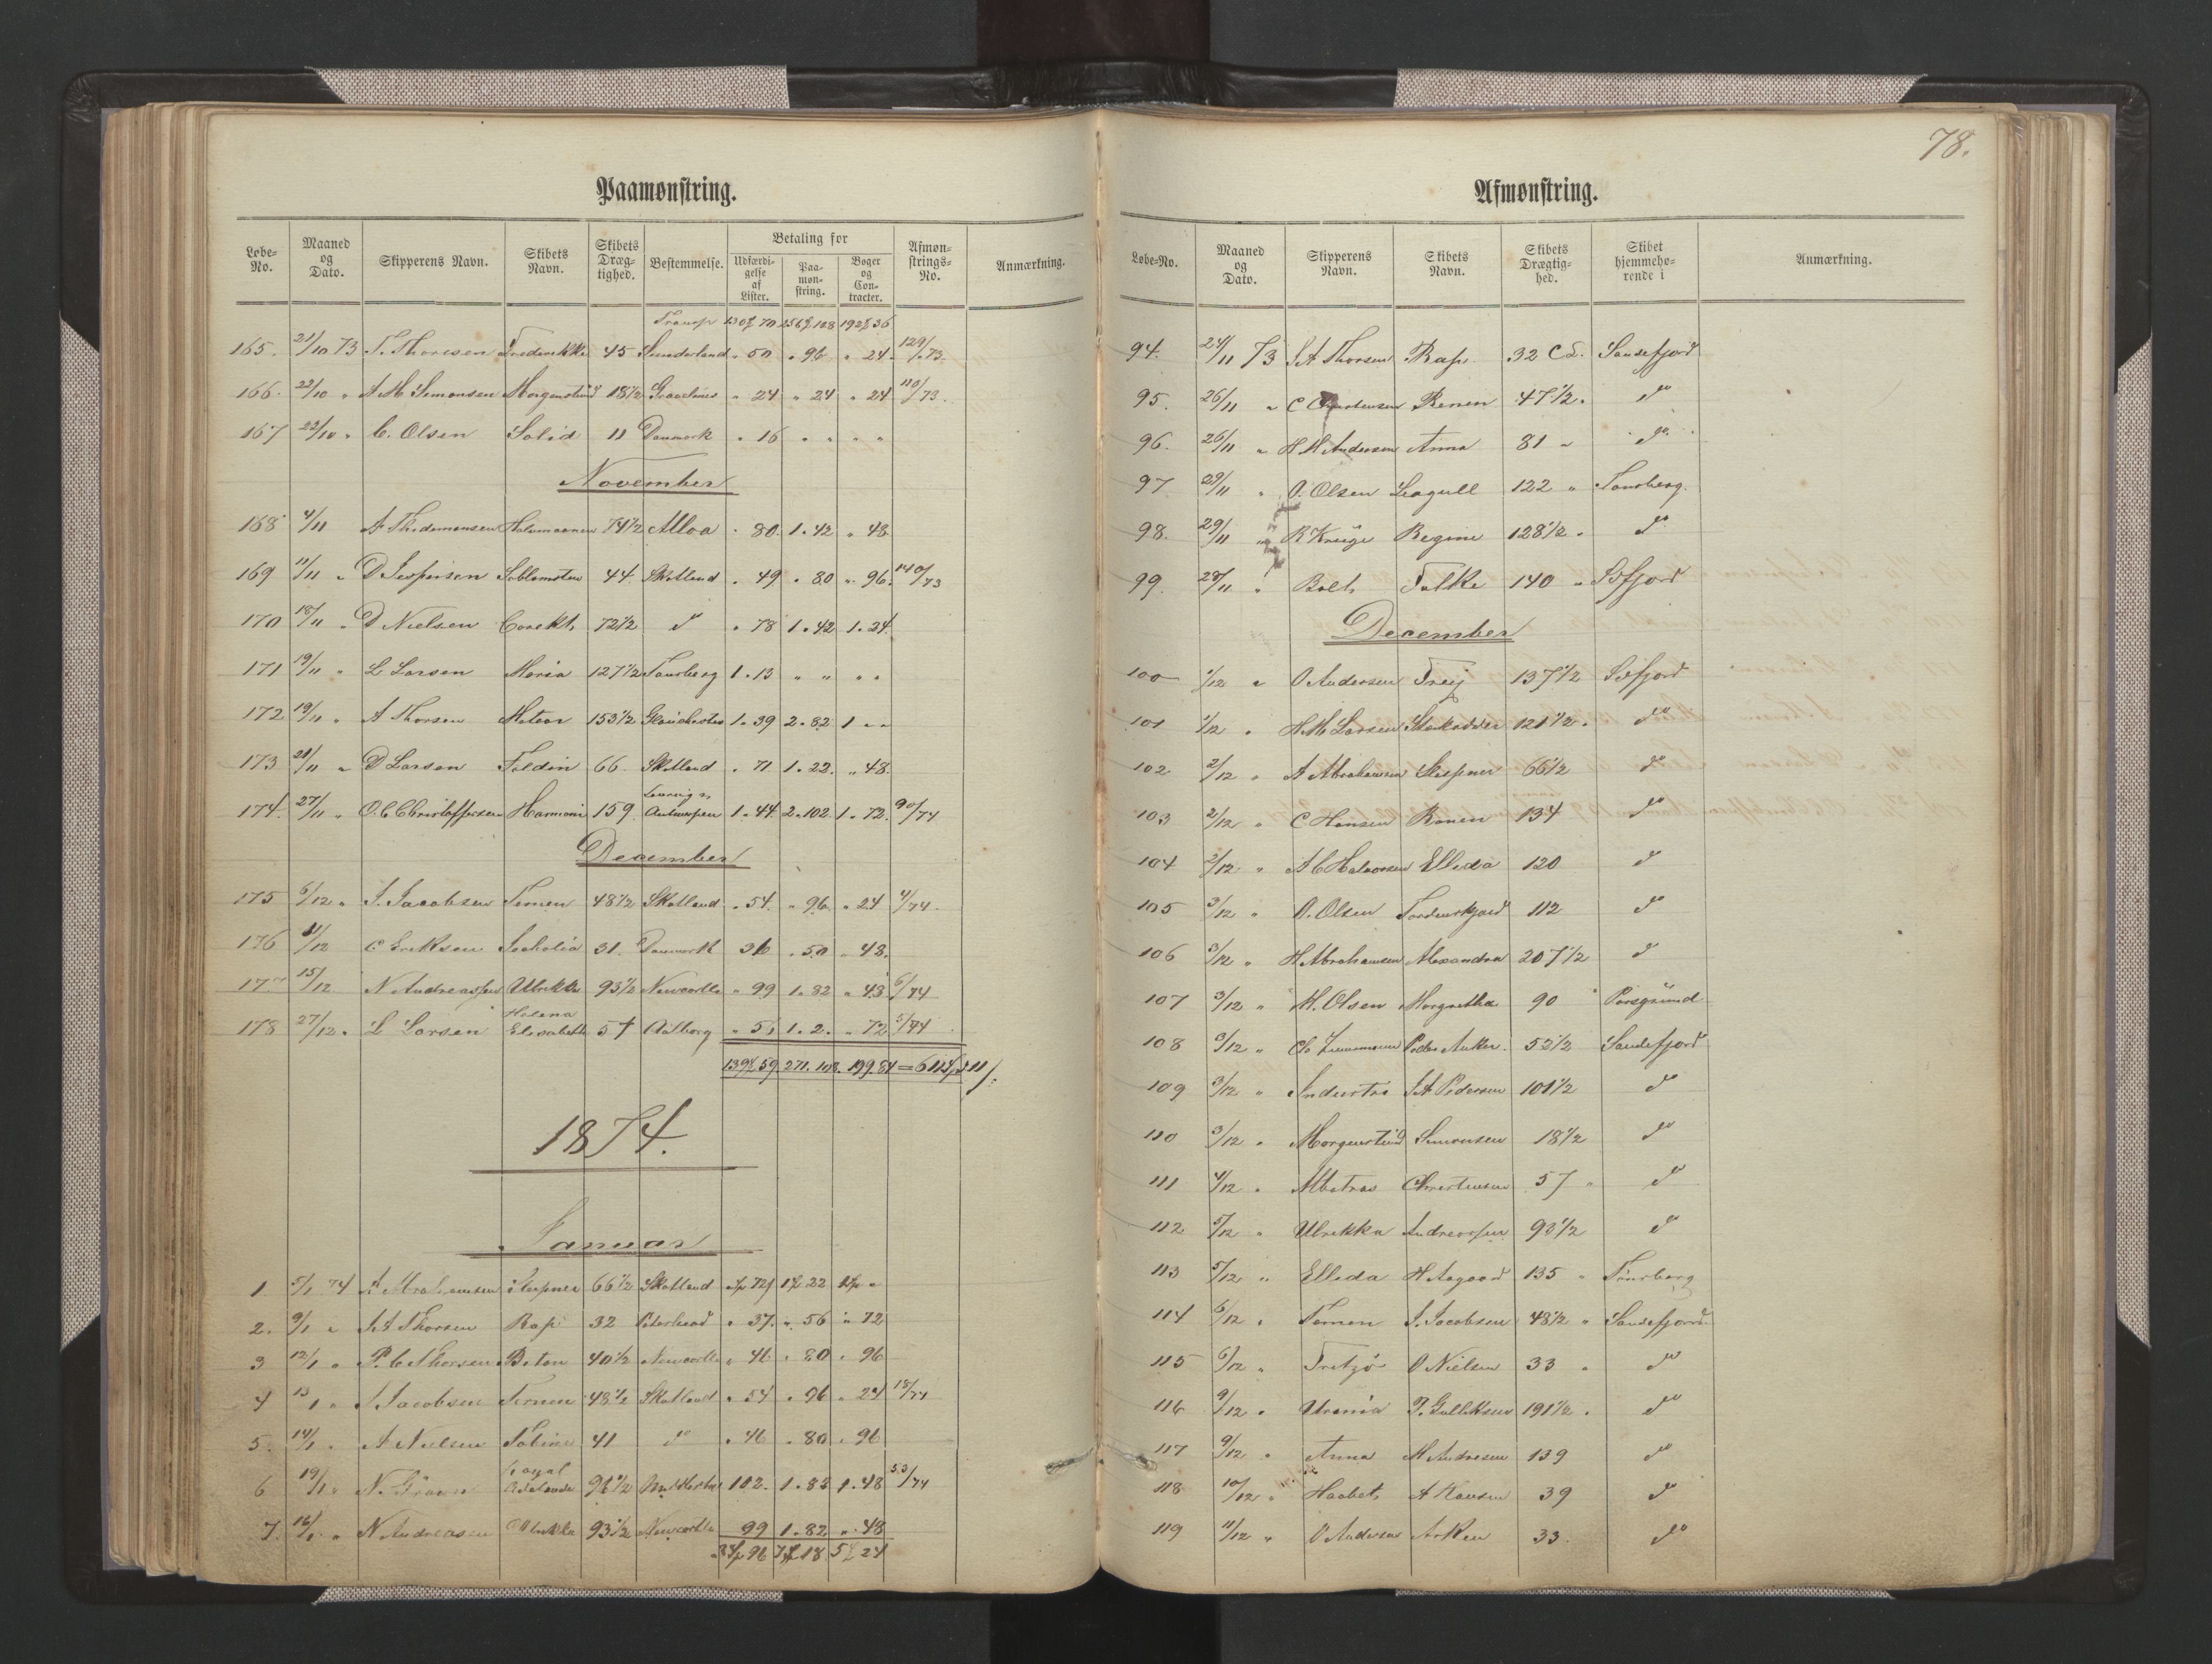 Paamønstring.
Løbe-No. Maaned og Dato. Skipperens Navn. Skibets Navn. Skibets Dræg-tighed. Bestemmelse. Betaling for Udfærdi-gelse af Lister. Paa-møn-string. Bøger og Con-tracter. Afmøn-strings-No. Anmærkning.
Transp 130 70 256 108 192 36
165. 21/10 73 T. Thoresen Fredrikke 45 Sunderland " 50 " 96 " 24 129/73.
166. 22/10 " A M Simonsen Morgenstund 18 1/2 " 24 " 24 " 24 110/73.
167 22/10 " C. Olsen Solid 11 Danmark " 16 " " " "
November
168 4/11 A Thidemansen Halvmaanen 74 1/2 Alloa " 80 1 " 42 " 48
169 11/11 " D Jespersen 44 Skotland " 49 " 80 " 96 140/73
170 18/11 " D Nielsen Corekt 72 1/2 do " 78 1 " 42 1 " 24
171 19/11 " L Larsen Maria 127 1/2 Tønsberg 1 " 13 " " " "
172 19/11 " A Thorsen Meteor 153 1/2 1 " 39 2 " 82 1 " "
173 21/11 " D Larsen 66 Skotland " 71 1 " 22 " 48
174. 27/11 " O. C Christoffersen Harmoni 159 Antwerpen 1 " 44 2 " 102 1 " 72 90/74
December
175 6/12 " J. Jacobsen Ternen 48 1/2 Skotland " 54 " 96 " 24 4/74
176 11/12 C Eriksen 31 Danmark 36 " 50 " 48
177 15/12 N Andreassen Ulrikke 93 1/2 Newcastle " 99 1 " 82 " 48 6/74
178 27/12 " L Larsen Helena Elisabeth 54 Aalborg " 51 1 " 2 " 72 5/74
139 59 271. 108. 199. 84 = 611
1874.
Januar
1 5/1 74 A Abrahamsen Skipner 66 1/2 Skotland 72 1 22 1 "
2. 9/1 " S A Thorsen Rap 32 Peterhead " 37 " 56 " 72
3 12/1 " P. C Thorsen 40 1/2 Newcastle " 46 " 80 " 96
4 13/1 " J Jacobsen Ternen 48 1/2 Skotland " 54 " 96 " 24 18/74
5. 14/1 " A Nielsen Sabine 41 do " 46 " 80 " 96
6 19/1 " N. Royal Adelaide 96 1/2 102. 1 " 83 1 " 48 53/74
7. 16/1 " N Andreasen Ulrikka 93 1/2 Newcastle 99 1 " 82 " 48
3 96 7 18 5 24
78.
Afmønstring.
Løbe-No. Maaned og Dato. Skipperens Navn. Skibets Navn. Skibets Drægtig-hed. Skibet hjemmehø-rende i Anmærkning.
94. 24/11 73 S A Thorsen Rap 32 C L. Sandefjord
95. 26/11 " C Christensen Renen 47 1/2 " do
96. 26/11 " H M Andersen Anna 81 " do
97 29/11 " O. Olsen Seagull 122 " Tønsberg.
98. 29/11 " R Krüge Regine 128 1/2 " do
99. 28/11 " Bolt Falke 140 " S.fjord
December
100 1/12 " O Andersen Freij 137 1/2 S.fjord
101 1/12 " H. M Larsen Starkodder 121 1/2 " do
102 2/12 " A Abrahamsen Skipner 66 1/2 do
103 2/12 " C. Hansen Ranen 134 do
104 2/12 " A C Halvorsen Ellida 120 do
105 3/12 " O. Olsen Tordenskjold 112 do
106 3/12 " H Abrahamsen Alexandra 207 1/2 do
107 3/12 " M. Olsen Margretha 90 " Porsgrund
108 3/12 " Peder Anker 52 1/2 Sandefjord
109 3/12 " Industri S A Pedersen 101 1/2 do
110 3/12 " Morgenstund Simonsen 18 1/2 do
111 4/12 " Albatros Christensen 57 " do
112 5/12 " Ulrikka Andreassen 93 1/2 do
113 5/12 " Ellida H Aagaard 135 " Tønsberg
114 6/12 " Ternen J. Jacobsen 48 1/2 " Sandefjord
115 6/12 " O Nielsen 33 " do
116 9/12 " Urania P. Gulliksen 191 1/2 " do
117 9/12 " Anna M Andresen 139 do
118 10/12 " Haabet A Hansen 39 do
119 11/12 " O Andersen Arken 33 do